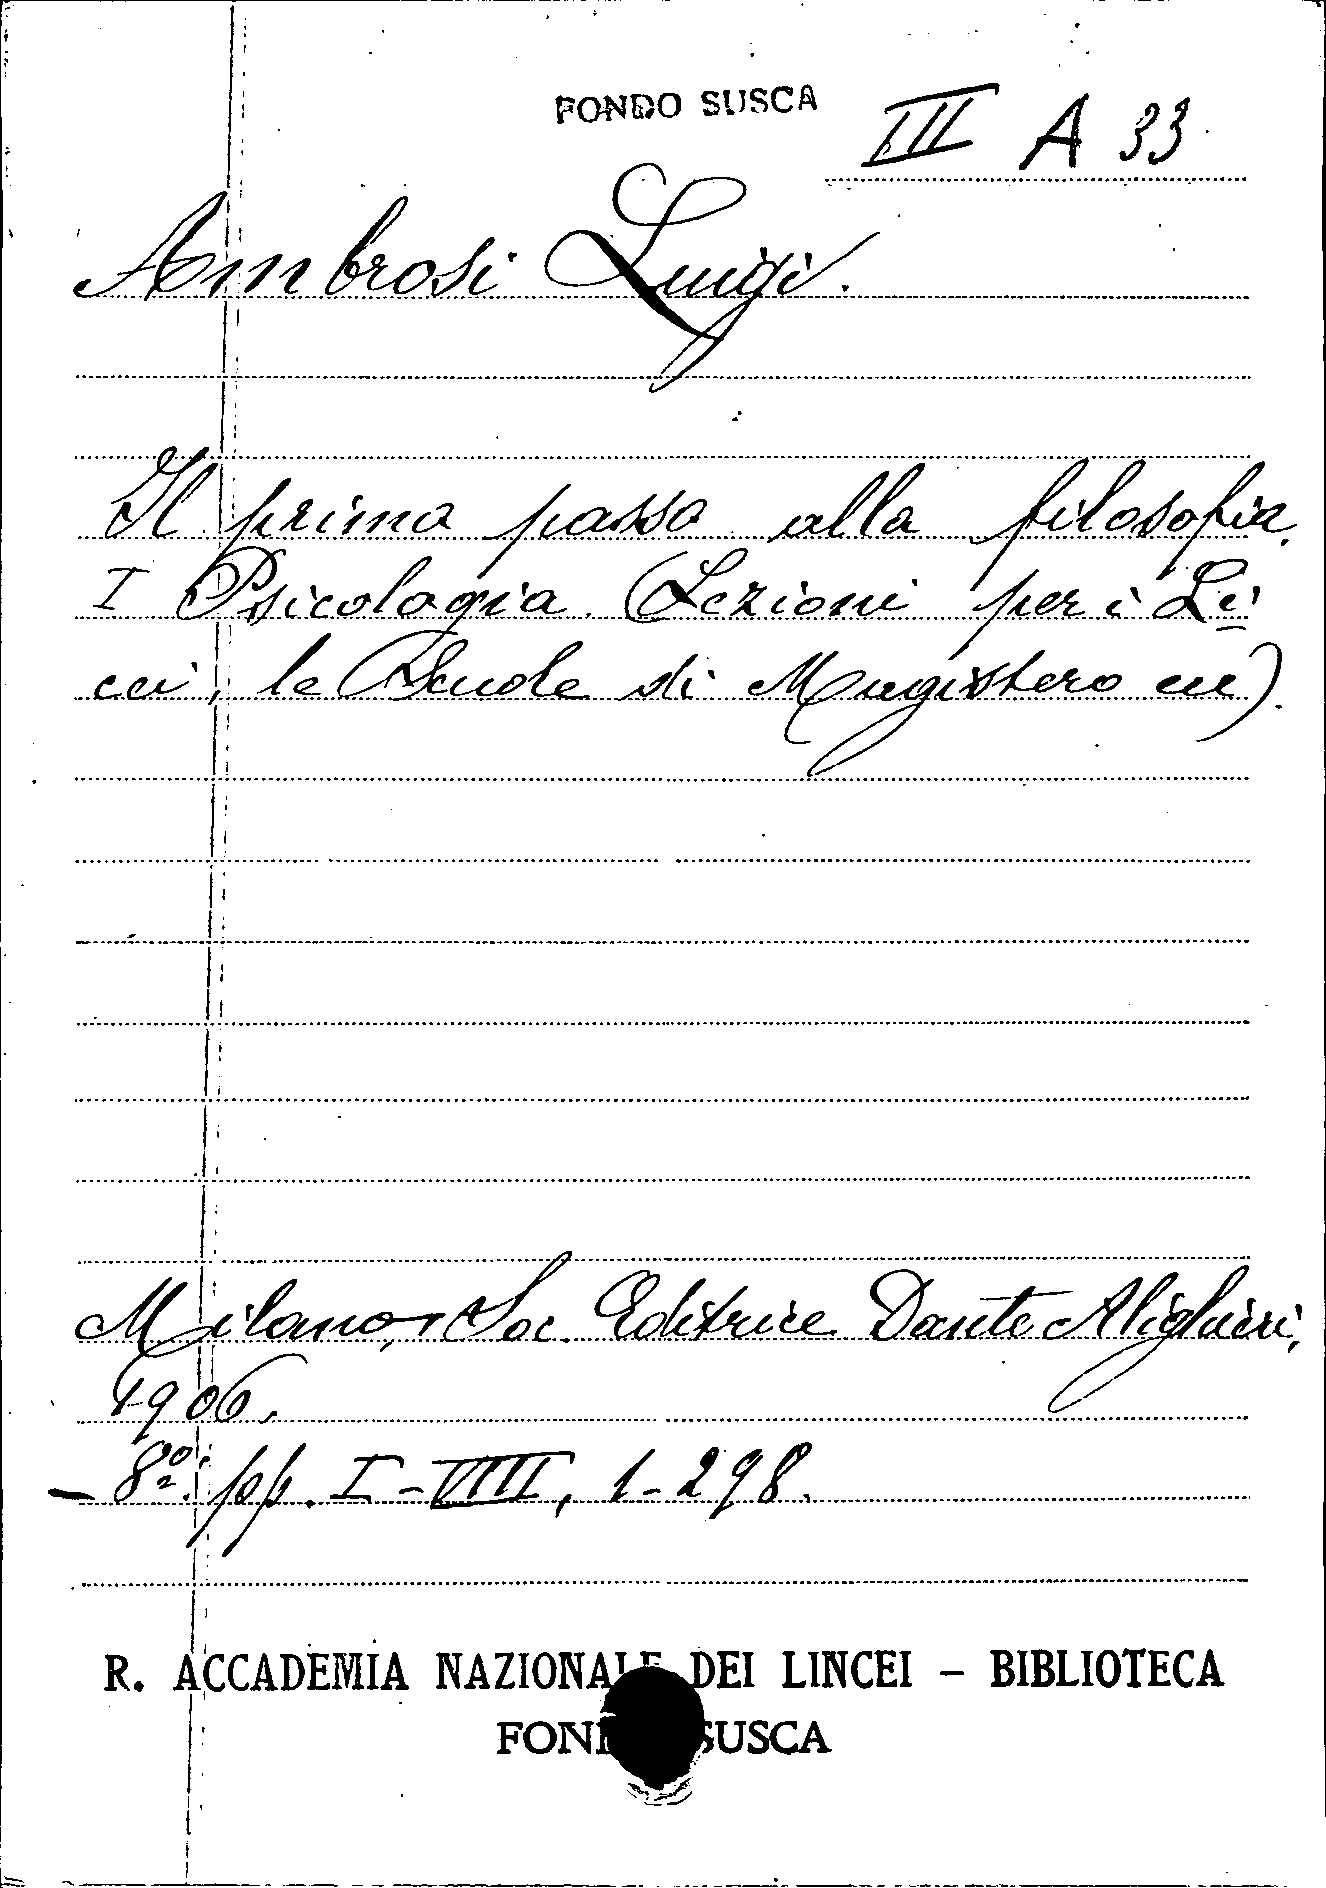 FONDO SUSCA
III A 33
Ambrosi Luigi.
Il primo passo alla filosofia.
I Psicologia. (Lezioni per i Li
cei, le Scuole di Magistero ecc)
Milano, Soc. Editrice Dante Alighieri,
1906.
- 8º. pp. I-VIII, 1-298.
R. ACCADEMIA NAZIONALE DEI LINCEI – BIBLIOTECA
FONDO SUSCA